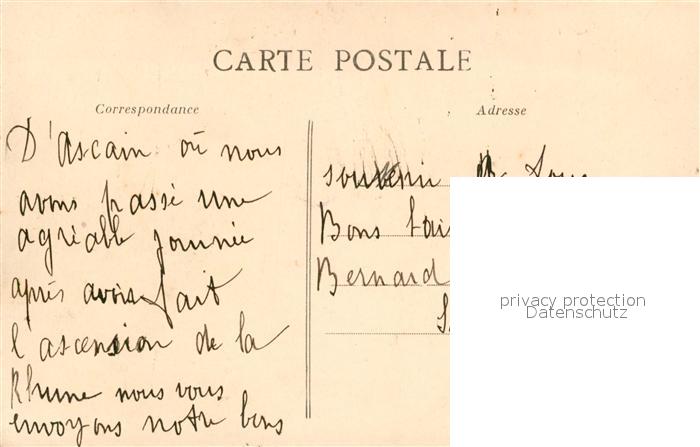 CARTE POSTALE
Correspondance
Adresse
D'Ascain où nous
avons passé une
agréable journée
après avoir fait
l'ascension de la
Rhune nous vous
envoyons notre bons
souvenir
Bons
Bernard
privacy protection
Datenschutz